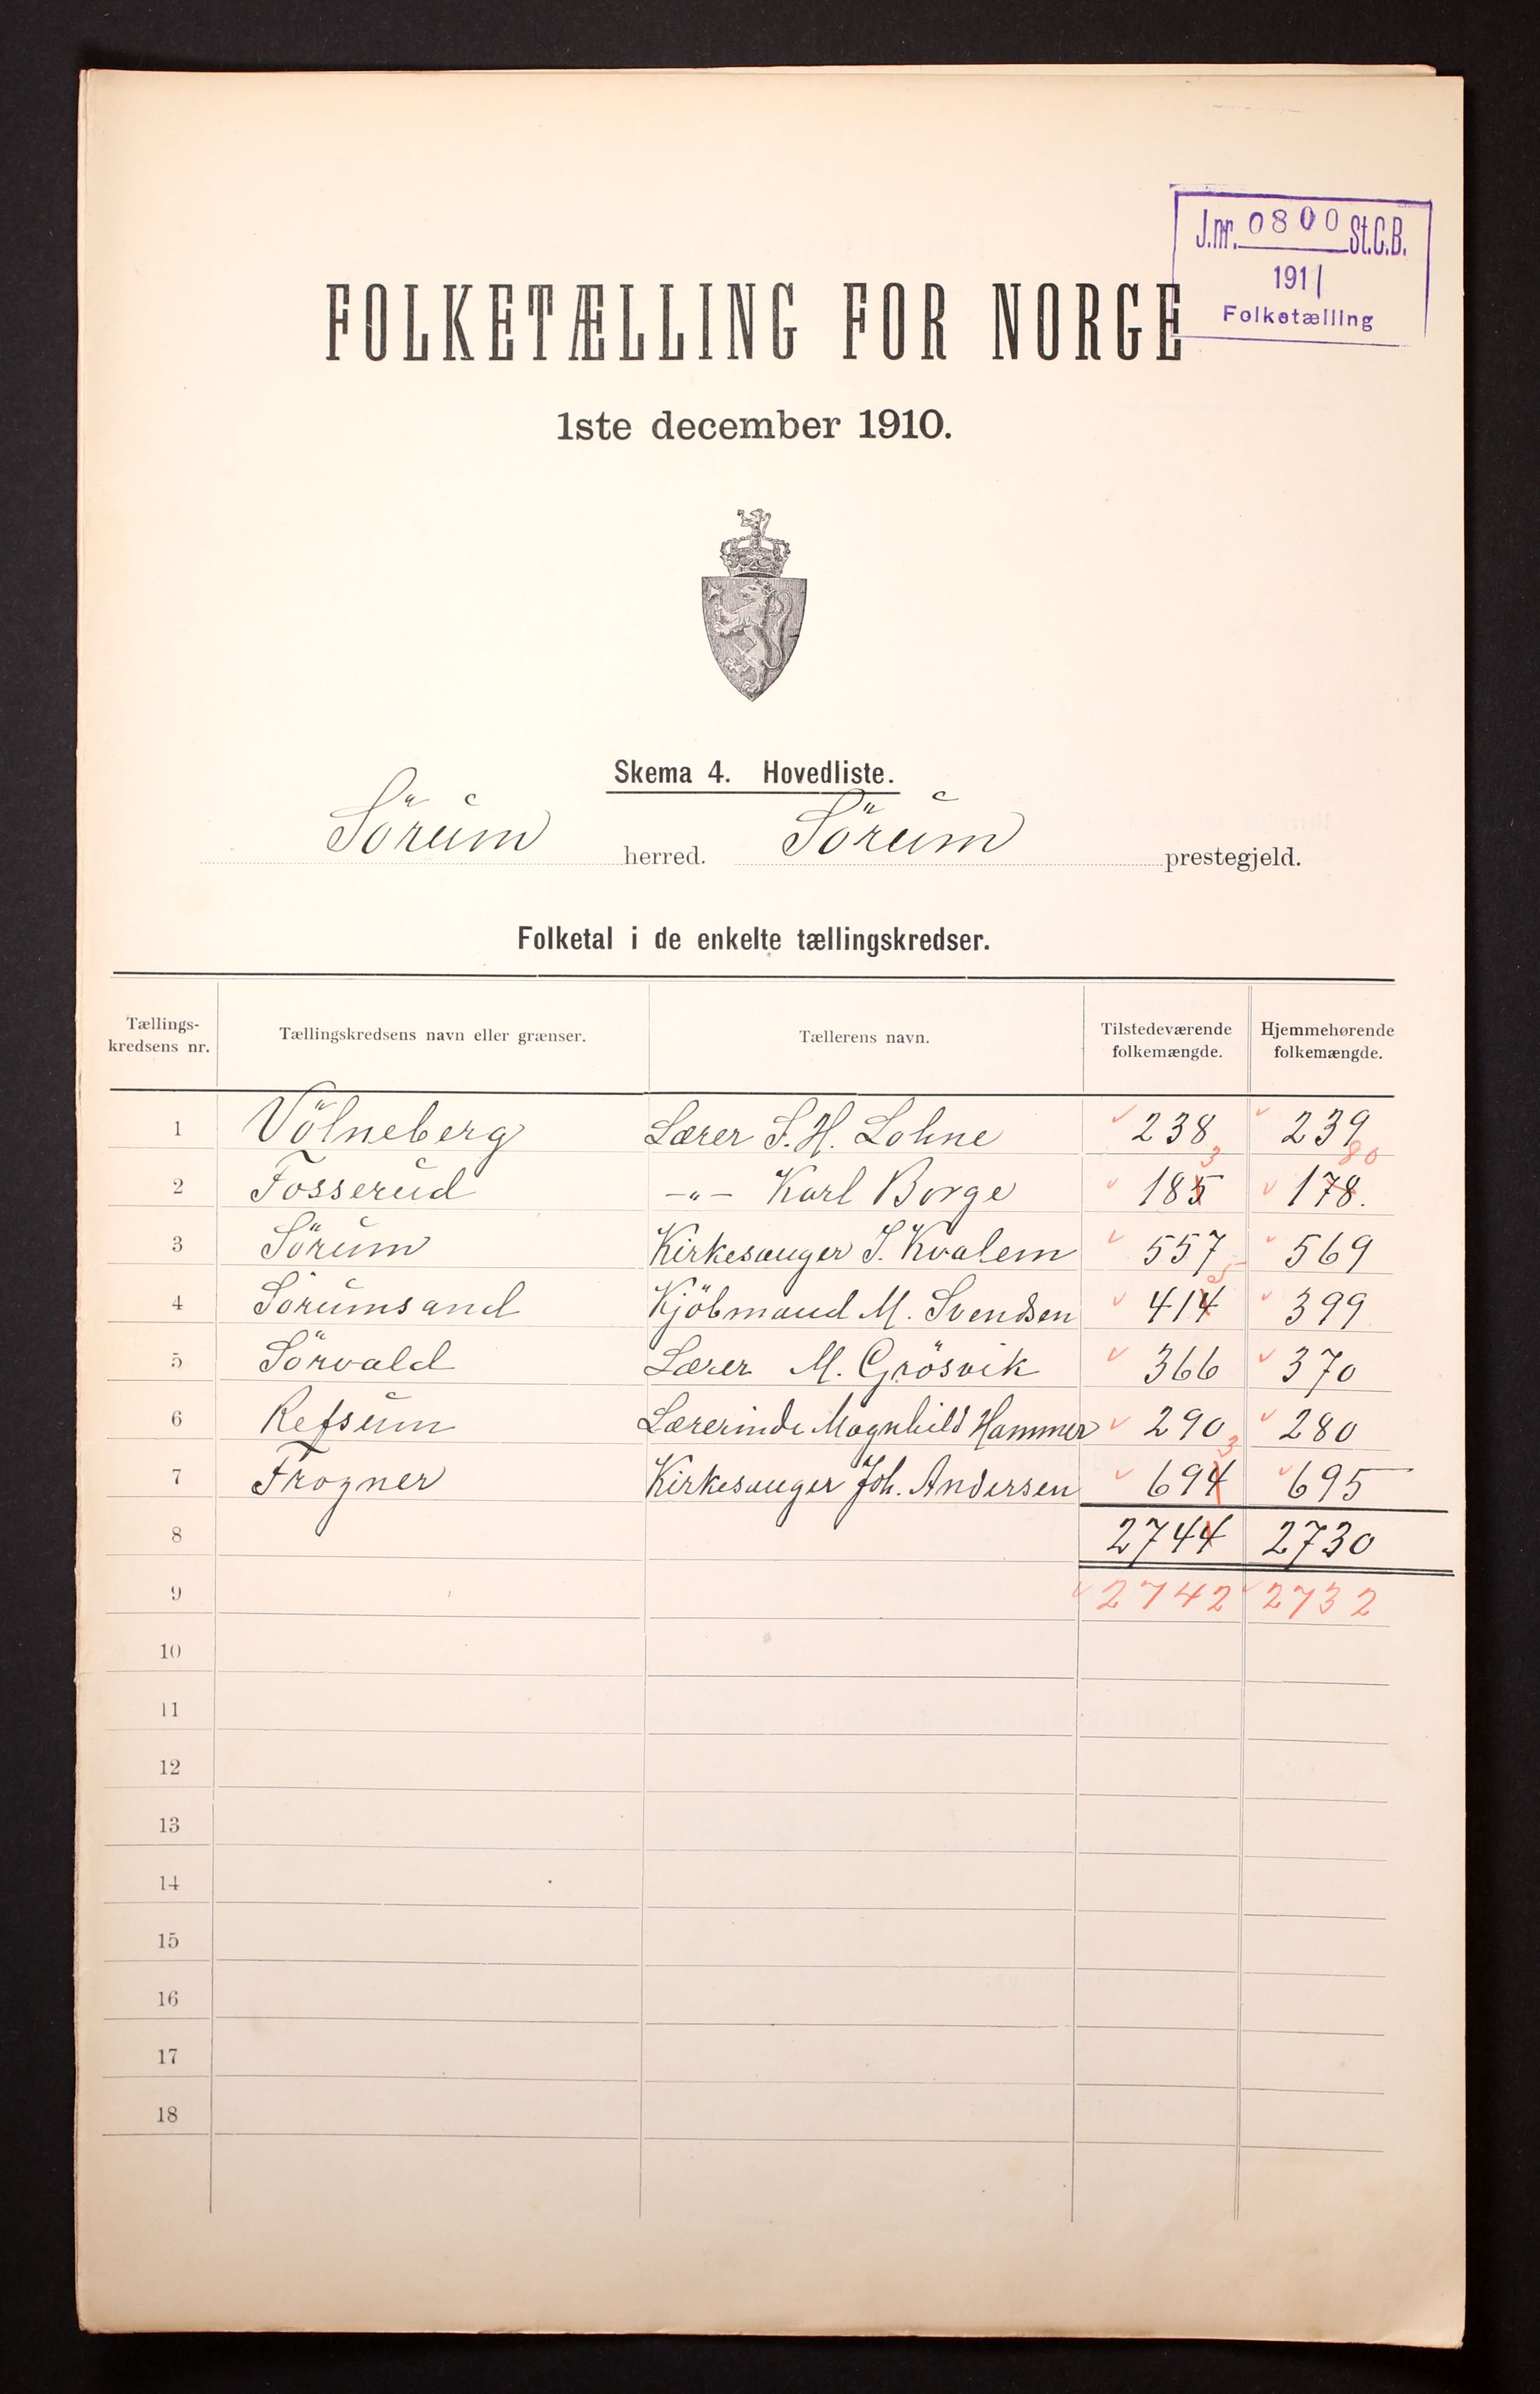 J.nr. 0800 St.C.B.
1911
Folketælling
FOLKETÆLLING FOR NORGE
1ste december 1910.
Skema 4. Hovedliste.
Sörum herred. Sörum prestegjeld.
Folketal i de enkelte tællingskredser.
Tællings-kredsens nr. Tællingskredsens navn eller grænser. Tællerens navn. Tilstedeværende folkemængde. Hjemmehørende folkemængde.
1 Völneberg Lærer S. H. Lohne 238 239
3 80
2 Fosserud -"- Karl Borge 185 178.
3 Sörum Kirkesanger S. Kvalem 557 569
5
4 Sörumsand Kjöbmand M. Svendsen 414 399
5 Sörvald Lærer M. Grösvik 366 370
6 Refsum Lærerinde Magnhild Hammer 290 280
3
7 Frogner Kirkesanger Joh. Andersen 694 695
8 2744 2730
9 2742 2732
10
11
12
13
14
15
16
17
18